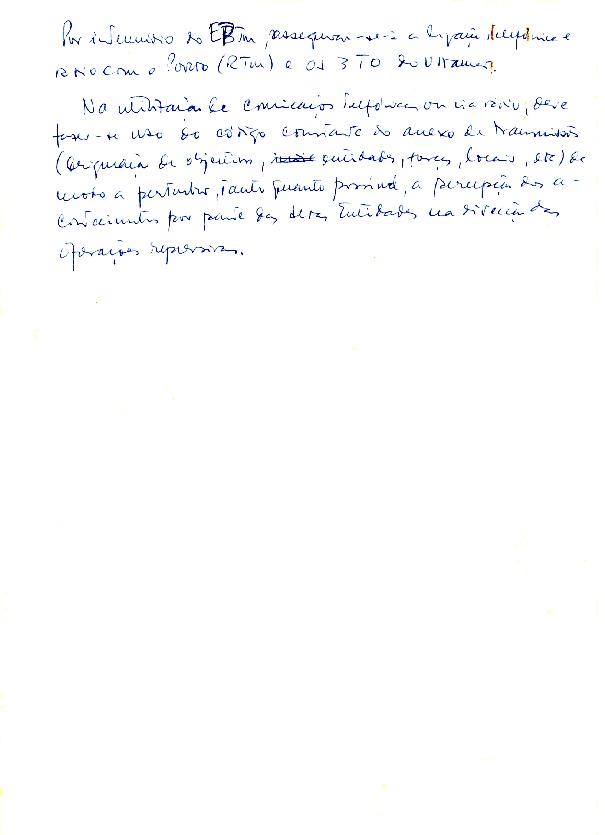 Por intermédio do EBTm, assegurar-se-á a ligação telefónica e
rádio com o Porto (RTm) e os 3 TO do Ultramar.
Na utilização de comunicações telefónicas ou via rádio, deve
fazer-se uso do código constante do anexo de transmissões
(designação de objectivos, entidades, forças, locais, etc) de
modo a perturbar, tanto quanto possível, a percepção dos a-
contecimentos por parte das altas Entidades na direcção das
operações repressivas.